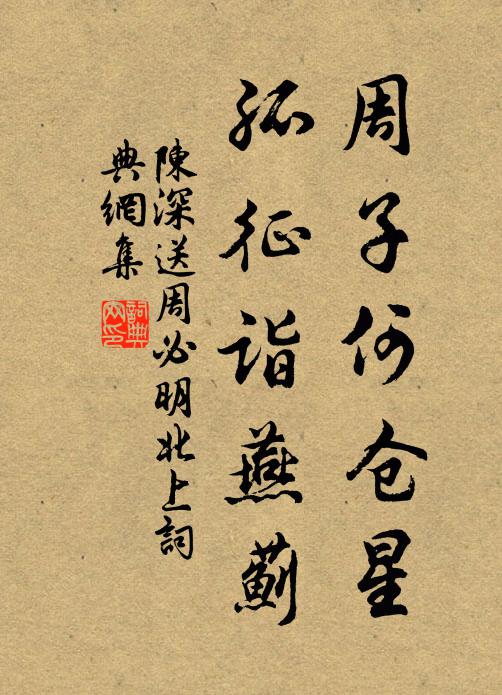 周子何仓星
孤征詣燕薊
陳深送周必明北上詞
典網集
詞典
网印